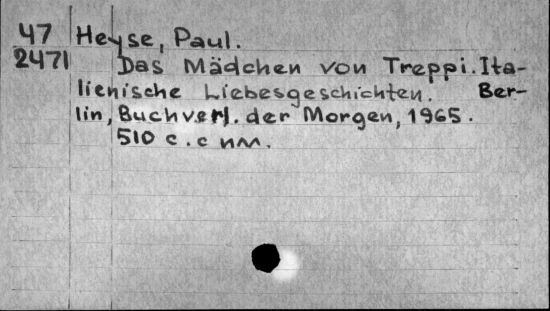 47 Heyse, Paul.
2471 Das Mädchen von Treppi. Ita-
lienische Liebesgeschichten. Ber-
lin, Buchverl. der Morgen, 1965.
510 c.